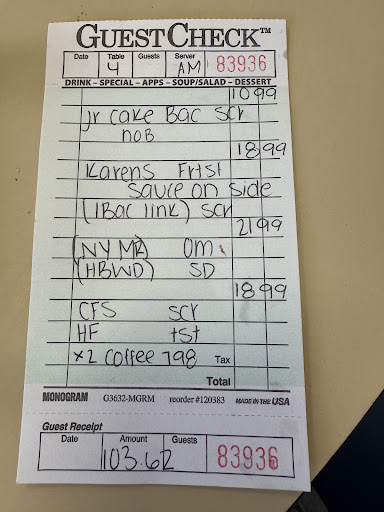 GUESTCHECK™
Date Table Guests Server
4 AM 83936
DRINK – SPECIAL – APPS – SOUP/SALAD – DESSERT
10 99
Jr cake Bac scr
no B
18 99
Karens Frtst
sauce on side
(1 Bac link) scr
21 99
(NY MR) om
(HBWD) SD
18 99
CFS scr
HF tst
x2 coffee 798 Tax
Total
MONOGRAM G3632-MGRM reorder #120383 MADE IN THE USA
Guest Receipt
Date Amount Guests
103.62 83936